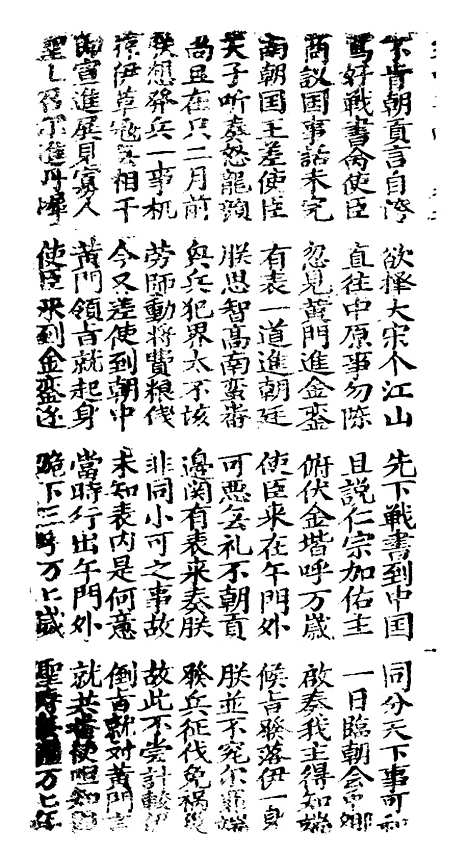 不肯朝貢言自湾
欲擇大宋个江山
先下戰書到中国
同分天下事可和
寫好戰書命使臣
直往中原事勿際
且説仁宗加佑主
一日臨朝会卿
商议囯事話未完
忽見黄門進金鑾
俯伏金堦呼万歲
啟奏我主得知端
南朝囯王差使臣
有表一道進朝廷
使臣来在午門外
候旨發落伊一身
天子听奏怒龍顔
朕思智高南蛮番
可悪无礼不朝貢
朕並不冤尔端
尚且在只二月前
兴兵犯界太不该
邊関有表来奏朕
發兵征伐免禍災
朕想發兵一事机
劳師動将費粮
非同小可之事故
故此不尝計較伊
諒伊草寇无相干
今又差使到朝中
未知表内是何意
倒旨就对黄門言
即宣進展見寡人
黄門領旨就起身
當時行出午門外
就共番使呾知
聖上召尔進丹墀
使臣来到金鑾边
跪下三呼万上歲
聖壽万七年